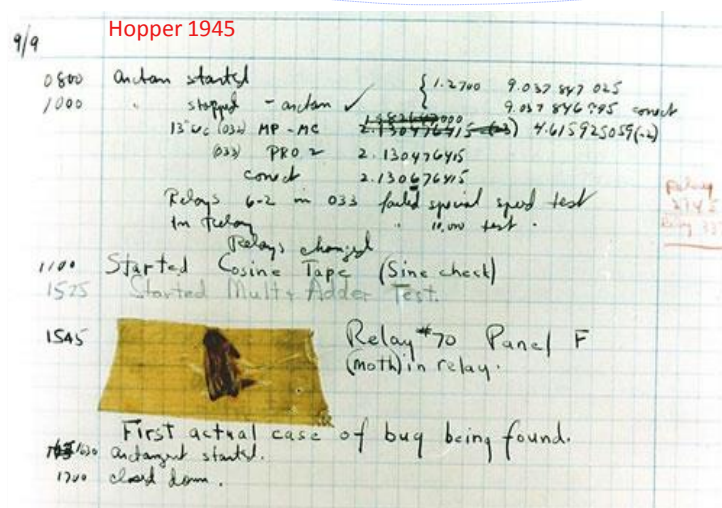 Hopper 1945
9/9
0800 Antan started { 1.2700 9.037 847 025
1000 " stopped - antan ✓ 9.037 846 795 conect
13"uc (032) MP - MC 2.130476415 (-3) 4.615925059(-2)
(033) PRO 2 2.130476415
conect 2.130676415
Relays 6-2 in 033 failed special speed test
In Relay " 10,000 test .
Relays changed
1100 Started Cosine Tape (Sine check)
1525 Started Mult + Adder Test.
1545 Relay #70 Panel F
(moth) in relay.
First actual case of bug being found.
1630 antangent started.
1700 closed down.